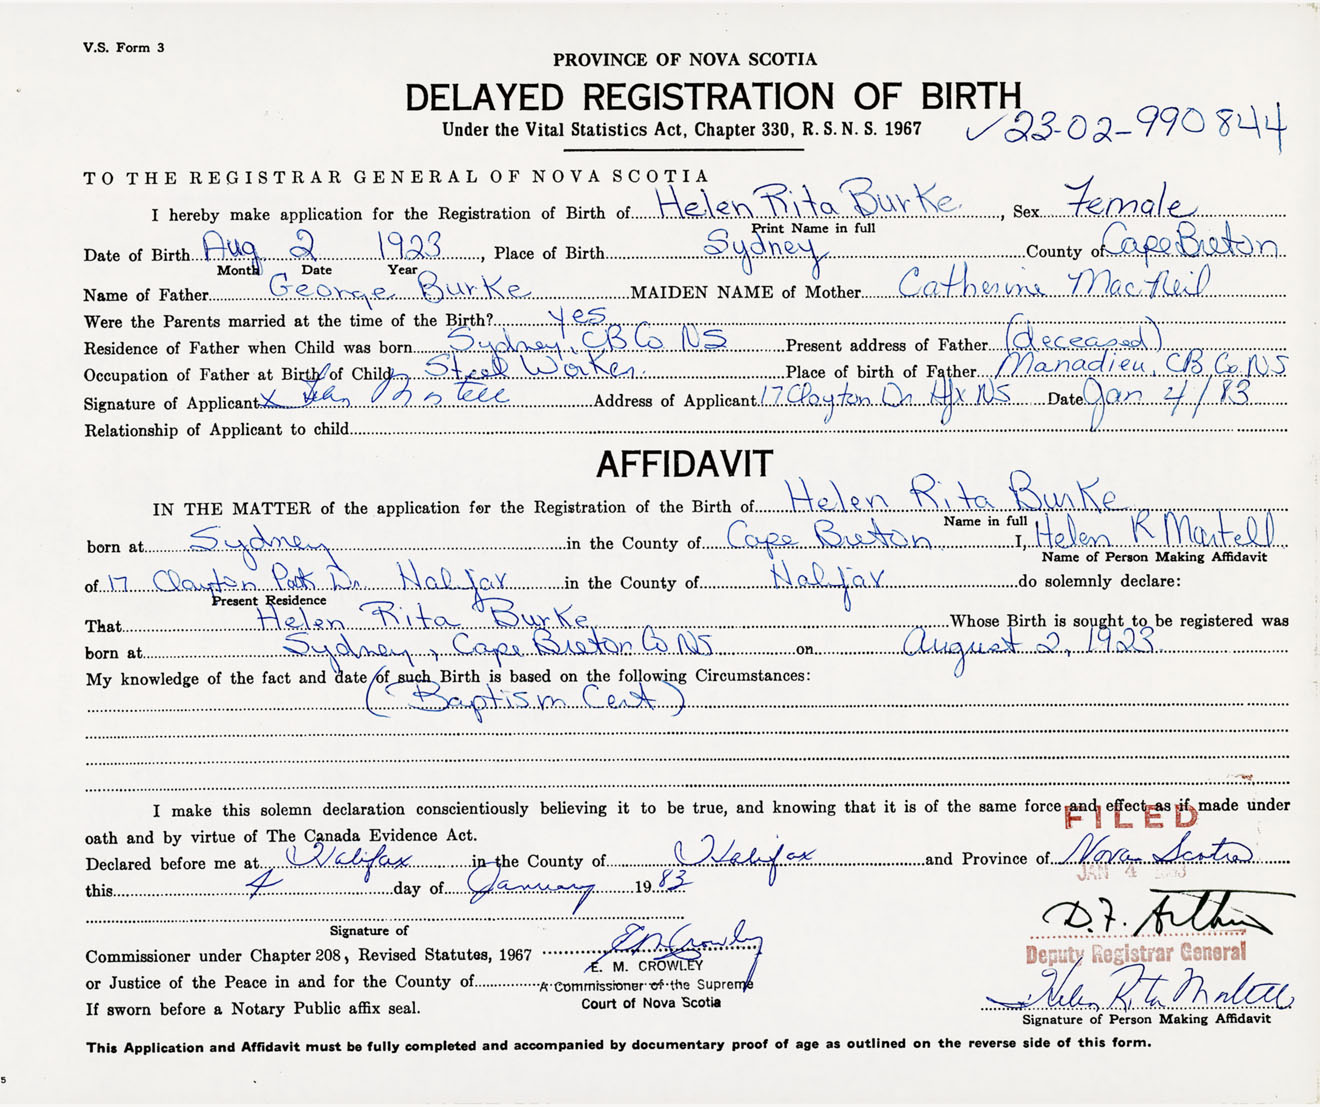 V.S. Form 3
PROVINCE OF NOVA SCOTIA
DELAYED REGISTRATION OF BIRTH
Under the Vital Statistics Act, Chapter 330, R.S.N.S. 1967 ✓23-02-990844
TO THE REGISTRAR GENERAL OF NOVA SCOTIA
I hereby make application for the Registration of Birth of Helen Rita Burke, Sex Female
Print Name in full
Date of Birth Aug 2 1923, Place of Birth Sydney County of Cape Breton
Month Date Year
Name of Father George Burke MAIDEN NAME of Mother Catherine MacNeil
Were the Parents married at the time of the Birth? yes
Residence of Father when Child was born Sydney, CB Co NS Present address of Father (deceased)
Occupation of Father at Birth of Child Steel Worker Place of birth of Father Manadieu, CB Co. NS
Signature of Applicant X Address of Applicant 17 Clayton Dr Hfx NS Date Jan 4/83
Relationship of Applicant to child
AFFIDAVIT
IN THE MATTER of the application for the Registration of the Birth of Helen Rita Burke
Name in full
born at Sydney in the County of Cape Breton I, Helen R Martell
Name of Person Making Affidavit
of 17 Clayton Park Dr. Halifax in the County of Halifax do solemnly declare:
Present Residence
That Helen Rita Burke Whose Birth is sought to be registered was
born at Sydney, Cape Breton Co NS on August 2, 1923
My knowledge of the fact and date of such Birth is based on the following Circumstances:
(Baptism Cert)
I make this solemn declaration conscientiously believing it to be true, and knowing that it is of the same force and effect as if made under
FILED
oath and by virtue of The Canada Evidence Act.
Declared before me at Halifax in the County of Halifax and Province of Nova Scotia
JAN 4 1983
this 4 day of January 1983
D.F. Arthur
Signature of
Deputy Registrar General
Commissioner under Chapter 208, Revised Statutes, 1967 E M Crowley
E. M. CROWLEY
or Justice of the Peace in and for the County of A Commissioner of the Supreme
Court of Nova Scotia
If sworn before a Notary Public affix seal.
Helen Rita Martell
Signature of Person Making Affidavit
This Application and Affidavit must be fully completed and accompanied by documentary proof of age as outlined on the reverse side of this form.
5